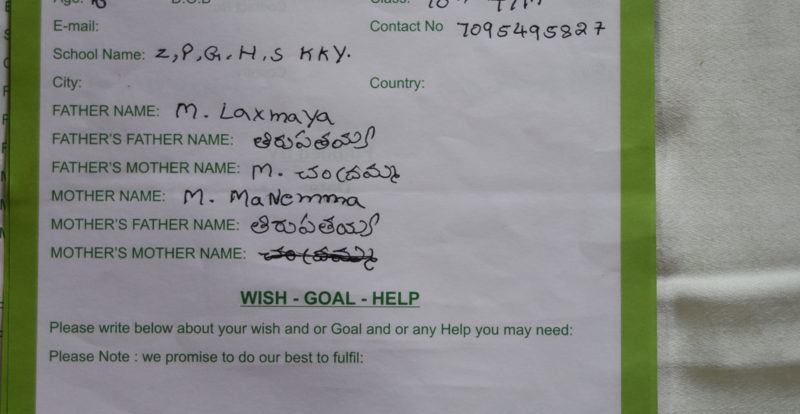 E-mail: Contact No 7095495827
School Name: Z,P,G,H,S KKY.
City: Country:
FATHER NAME: M. Laxmaya
FATHER'S FATHER NAME: తిరుపతయ్య
FATHER'S MOTHER NAME: M. చంద్రమ్మ
MOTHER NAME: M. MaNemma
MOTHER'S FATHER NAME: తిరుపతయ్య
MOTHER'S MOTHER NAME:
WISH - GOAL - HELP
Please write below about your wish and or Goal and or any Help you may need:
Please Note : we promise to do our best to fulfil: